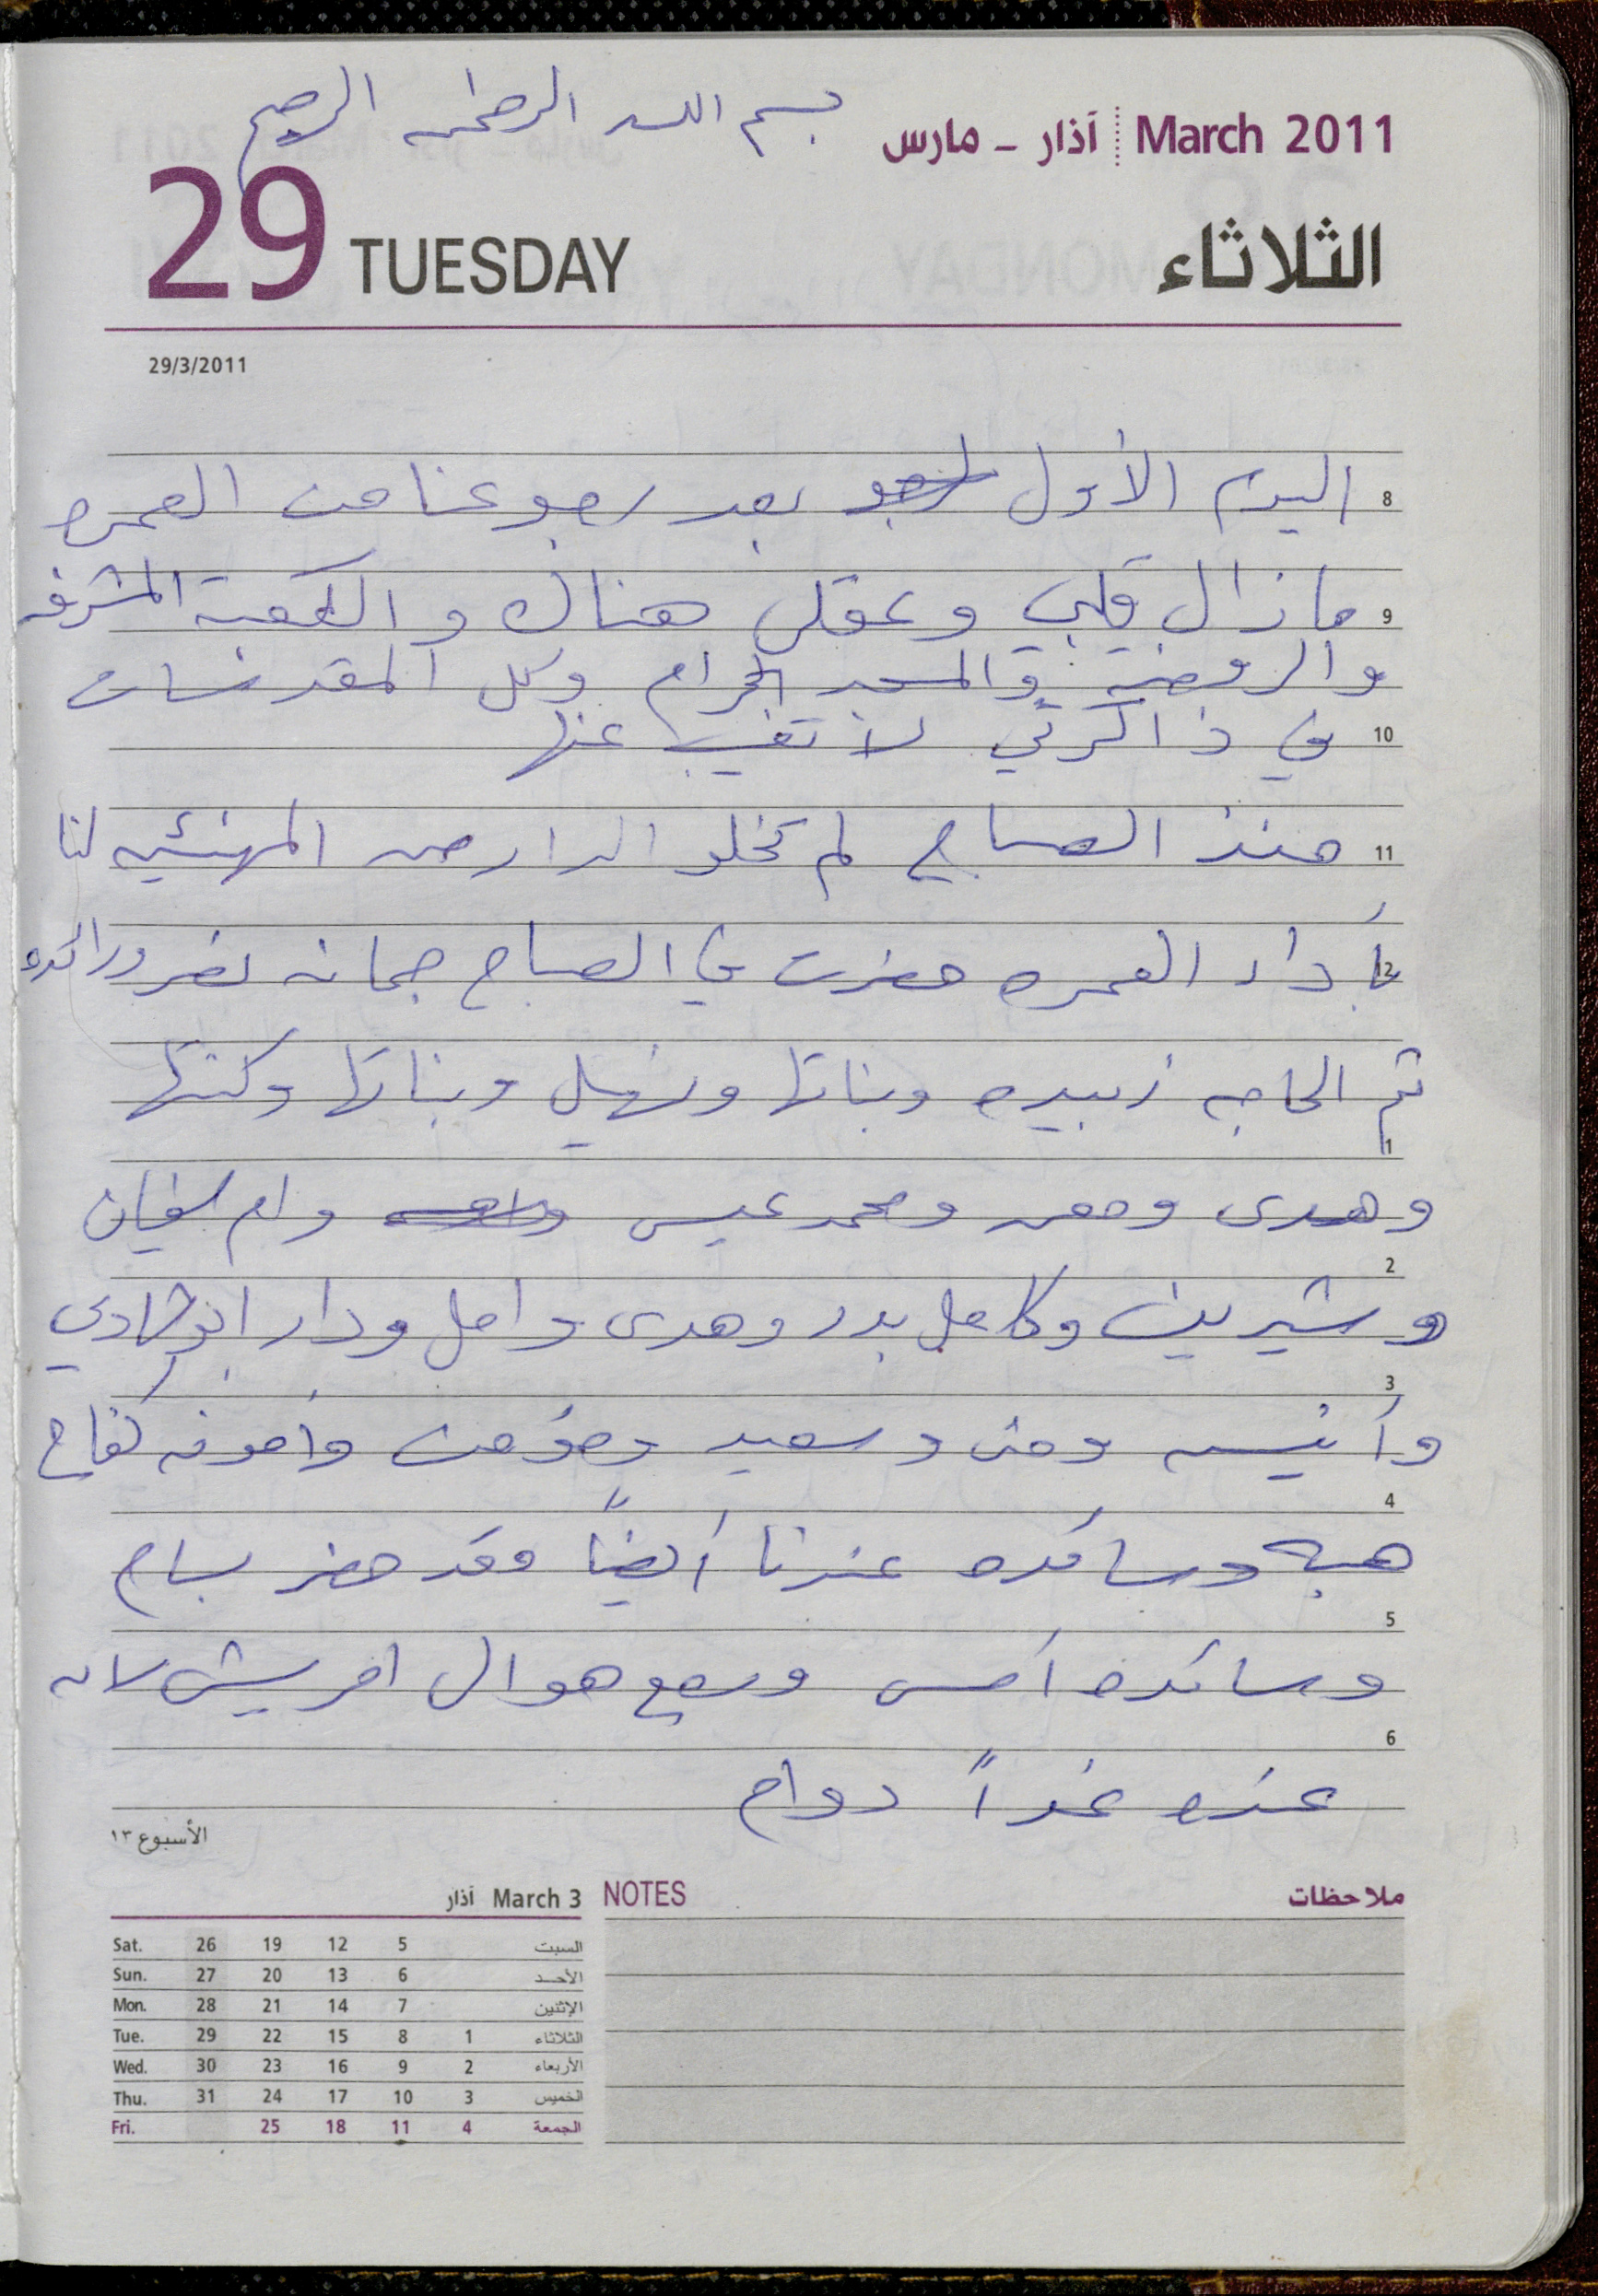 بسم الله الرحمن الرحيم
آذار - مارس March 2011
29 TUESDAY الثلاثاء
29/3/2011
8 اليوم الأول بعد رجوعنا من العمره
9 ما زال قلبي وعقلي هناك والكعبة المشرفه
والروضة والمسجد الحرام وكل المقدسات
10 في ذاكرتي لا تغيب عنها
11 منذ الصباح لم تخلو الدار من المهنئين لنا
12 بأداء العمره حضرت في الصباح جمانه نضر ورائده
ثم الحاجه زبيده وبناتها ونهيل وبناتها وكنتها
1
وهدى ومعن ومحمد عيسى وام سفيان
2
وشيرين وكامل بدر وهدى وامل ودار ابو هادي
3
وأنيسه ومنى وسعيد ومؤمن وأخوته كفاح
4
هبه وسائده عندنا أيضاً وقد حضر بسام
5
وسائده أمس ورجع هوال لانه
6
عنده غداً دوام
الأسبوع ١٣
آذار March 3 NOTES ملاحظات
Sat. 26 19 12 5 السبت
Sun. 27 20 13 6 الأحد
Mon. 28 21 14 7 الإثنين
Tue. 29 22 15 8 1 الثلاثاء
Wed. 30 23 16 9 2 الأربعاء
Thu. 31 24 17 10 3 الخميس
Fri. 25 18 11 4 الجمعة